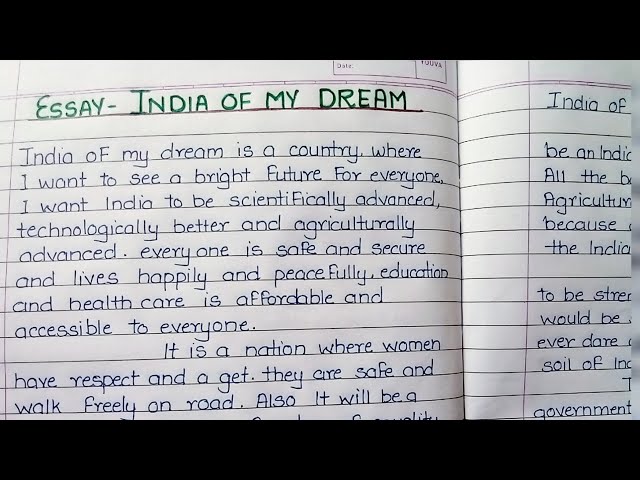 Date:
YOUVA
ESSAY- INDIA OF MY DREAM
India of my dream is a country, where
I want to see a bright future for everyone.
I want India to be scientifically advanced,
technologically better and agriculturally
advanced. everyone is safe and secure
and lives happily and peacefully. education
and health care is affordable and
accessible to everyone.
It is a nation where women
have respect and a get. they are safe and
walk freely on road. Also It will be a
India of
be an India
All the
Agricultur
because
the India
to be stren
would be
ever dare
soil of Ind
T
government